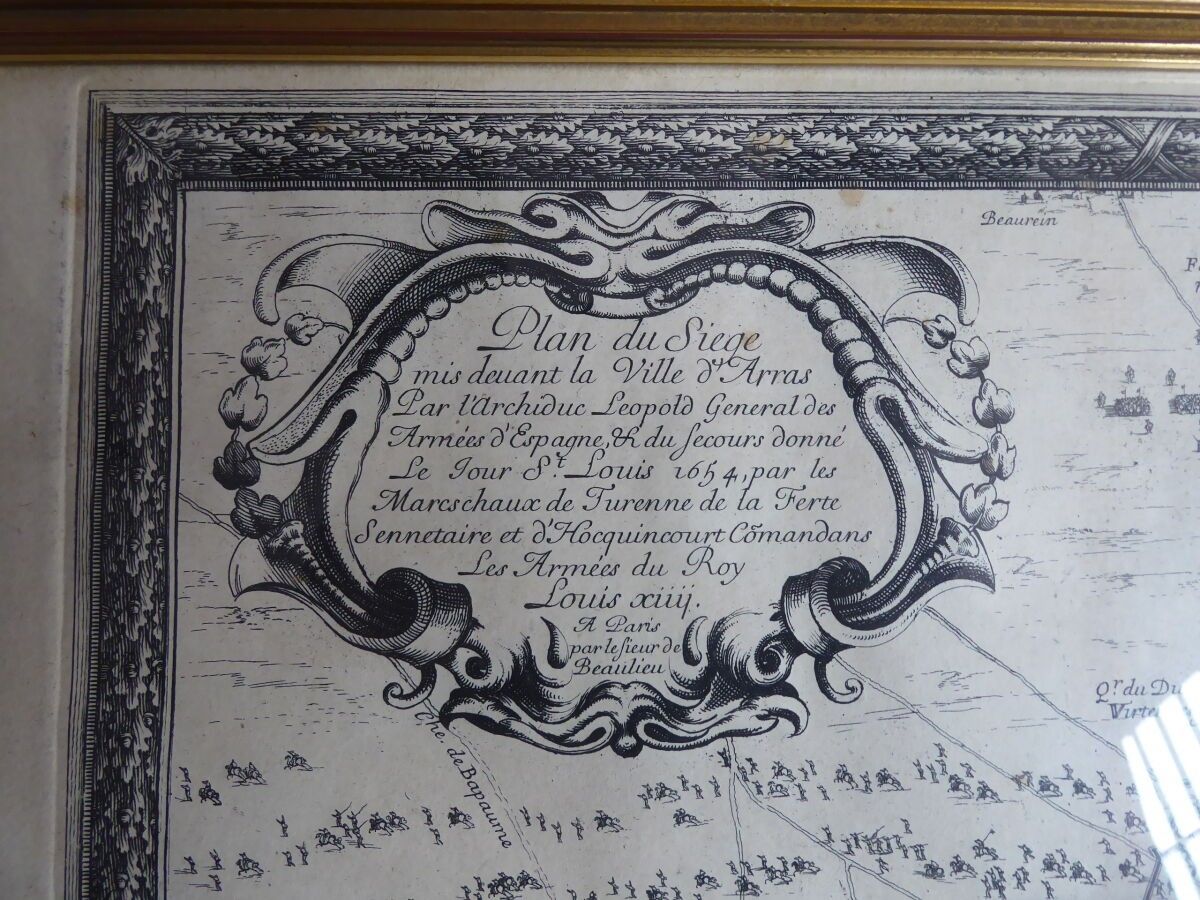 Plan du Siege
mis deuant la Ville d'Arras
Par l'Archiduc Leopold General des
Armées d'Espagne, & du secours donné
Le Iour St. Louis 1654, par les
Marcschaux de Turenne de la Ferte
Sennetaire et d'Hocquincourt Cõmandans
Les Armées du Roy
Louis xiiij.
A Paris
par le sieur de
Beaulieu
Beaurein
Qr. du Du
Virte
Che. de Bapaume